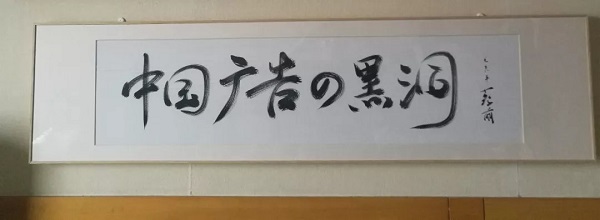 中国广告の黑洞